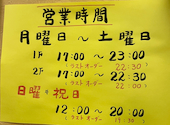 営業時間
月曜日～土曜日
1F 17:00～23:00
(ラストオーダー 22:30)
2F 17:00～22:00
(ラストオーダー 21:30)
日曜・祝日
12:00～20:00
(ラストオーダー